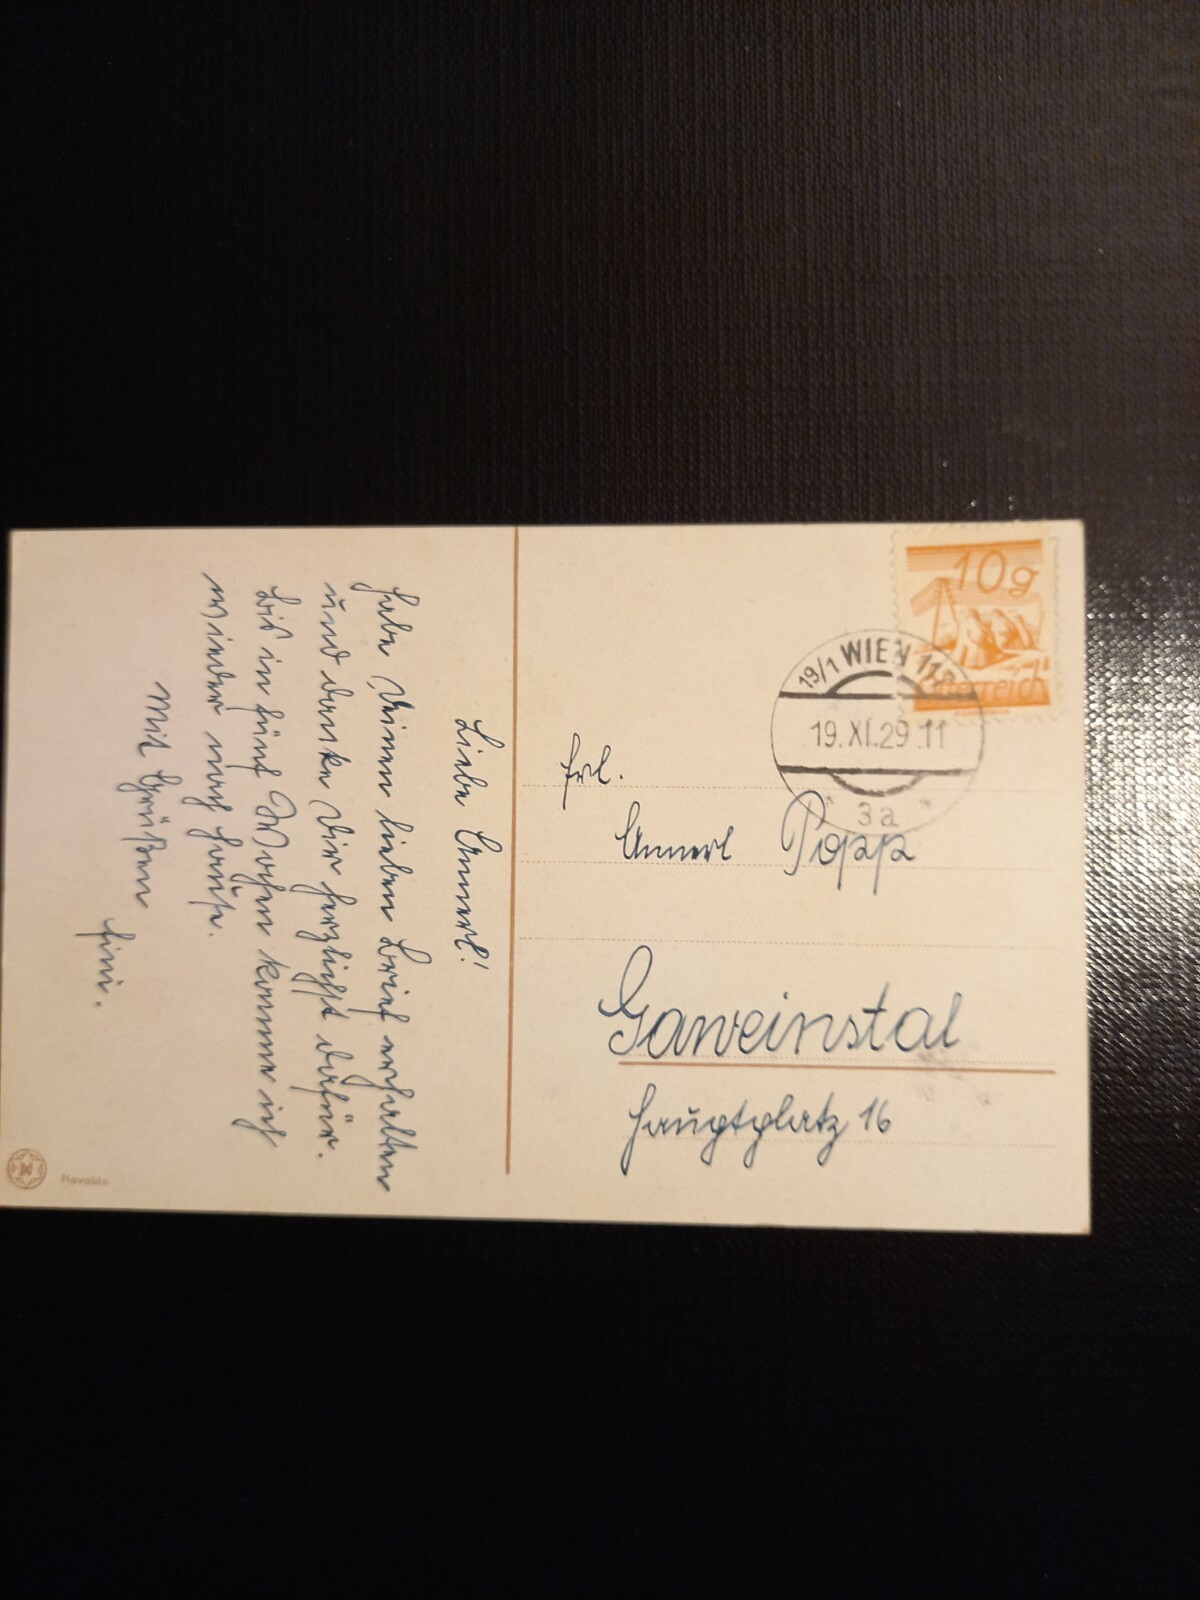 Liebe Annerl!
Habe Deinen lieben Brief erhalten
und danke Dir herzlichst dafür.
Bis in fünf Wochen komme ich
wieder nach Hause.
Mit Grüßen
Fini.
Novalito
10g
Österreich
19/1 WIEN 11
19.XI.29 11
* 3a *
Frl.
Annerl Popp
Gaweinstal
Hauptplatz 16